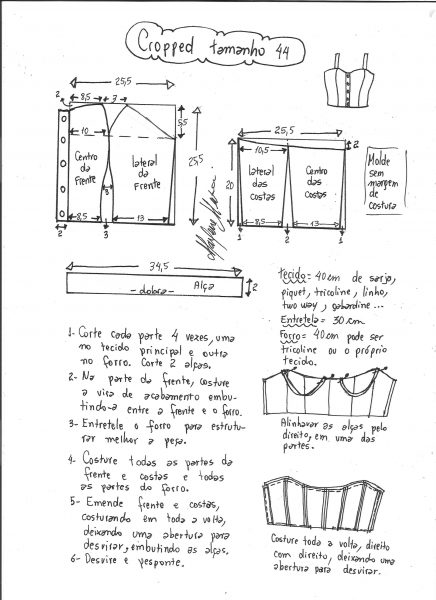 Cropped tamanho 44
25,5
8,5
7
2
10
5,5
25,5
Centro
da
Frente
lateral
da
Frente
3
8,5
13
2
3
25,5
10,5
2
20
lateral
das
costas
Centro
das
Costas
8,5
13
1
2
1
Molde
sem
margem
de
costura
34,5
Alça
- dobra -
2
tecido = 40cm de sarja,
piquet, tricoline, linho,
two way, gabardine...
Entretela = 30cm
Forro = 40cm pode ser
tricoline ou o próprio
tecido.
1- Corte cada parte 4 vezes, uma
no tecido principal e outra
no forro. Corte 2 alças.
2- Na parte da frente, costure
a vira de acabamento embu-
tindo-a entre a frente e o forro.
3- Entretele o forro para estrutu-
rar melhor a peça.
4- Costure todas as partes da
frente e costas e todas
as partes do forro.
5- Emende frente e costas,
costurando em toda a volta,
deixando uma abertura para
desvirar, embutindo as alças.
6- Desvire e pesponte.
Alinhavar as alças pelo
direito, em uma das
partes.
Costure toda a volta, direito
com direito, deixando uma
abertura para desvirar.